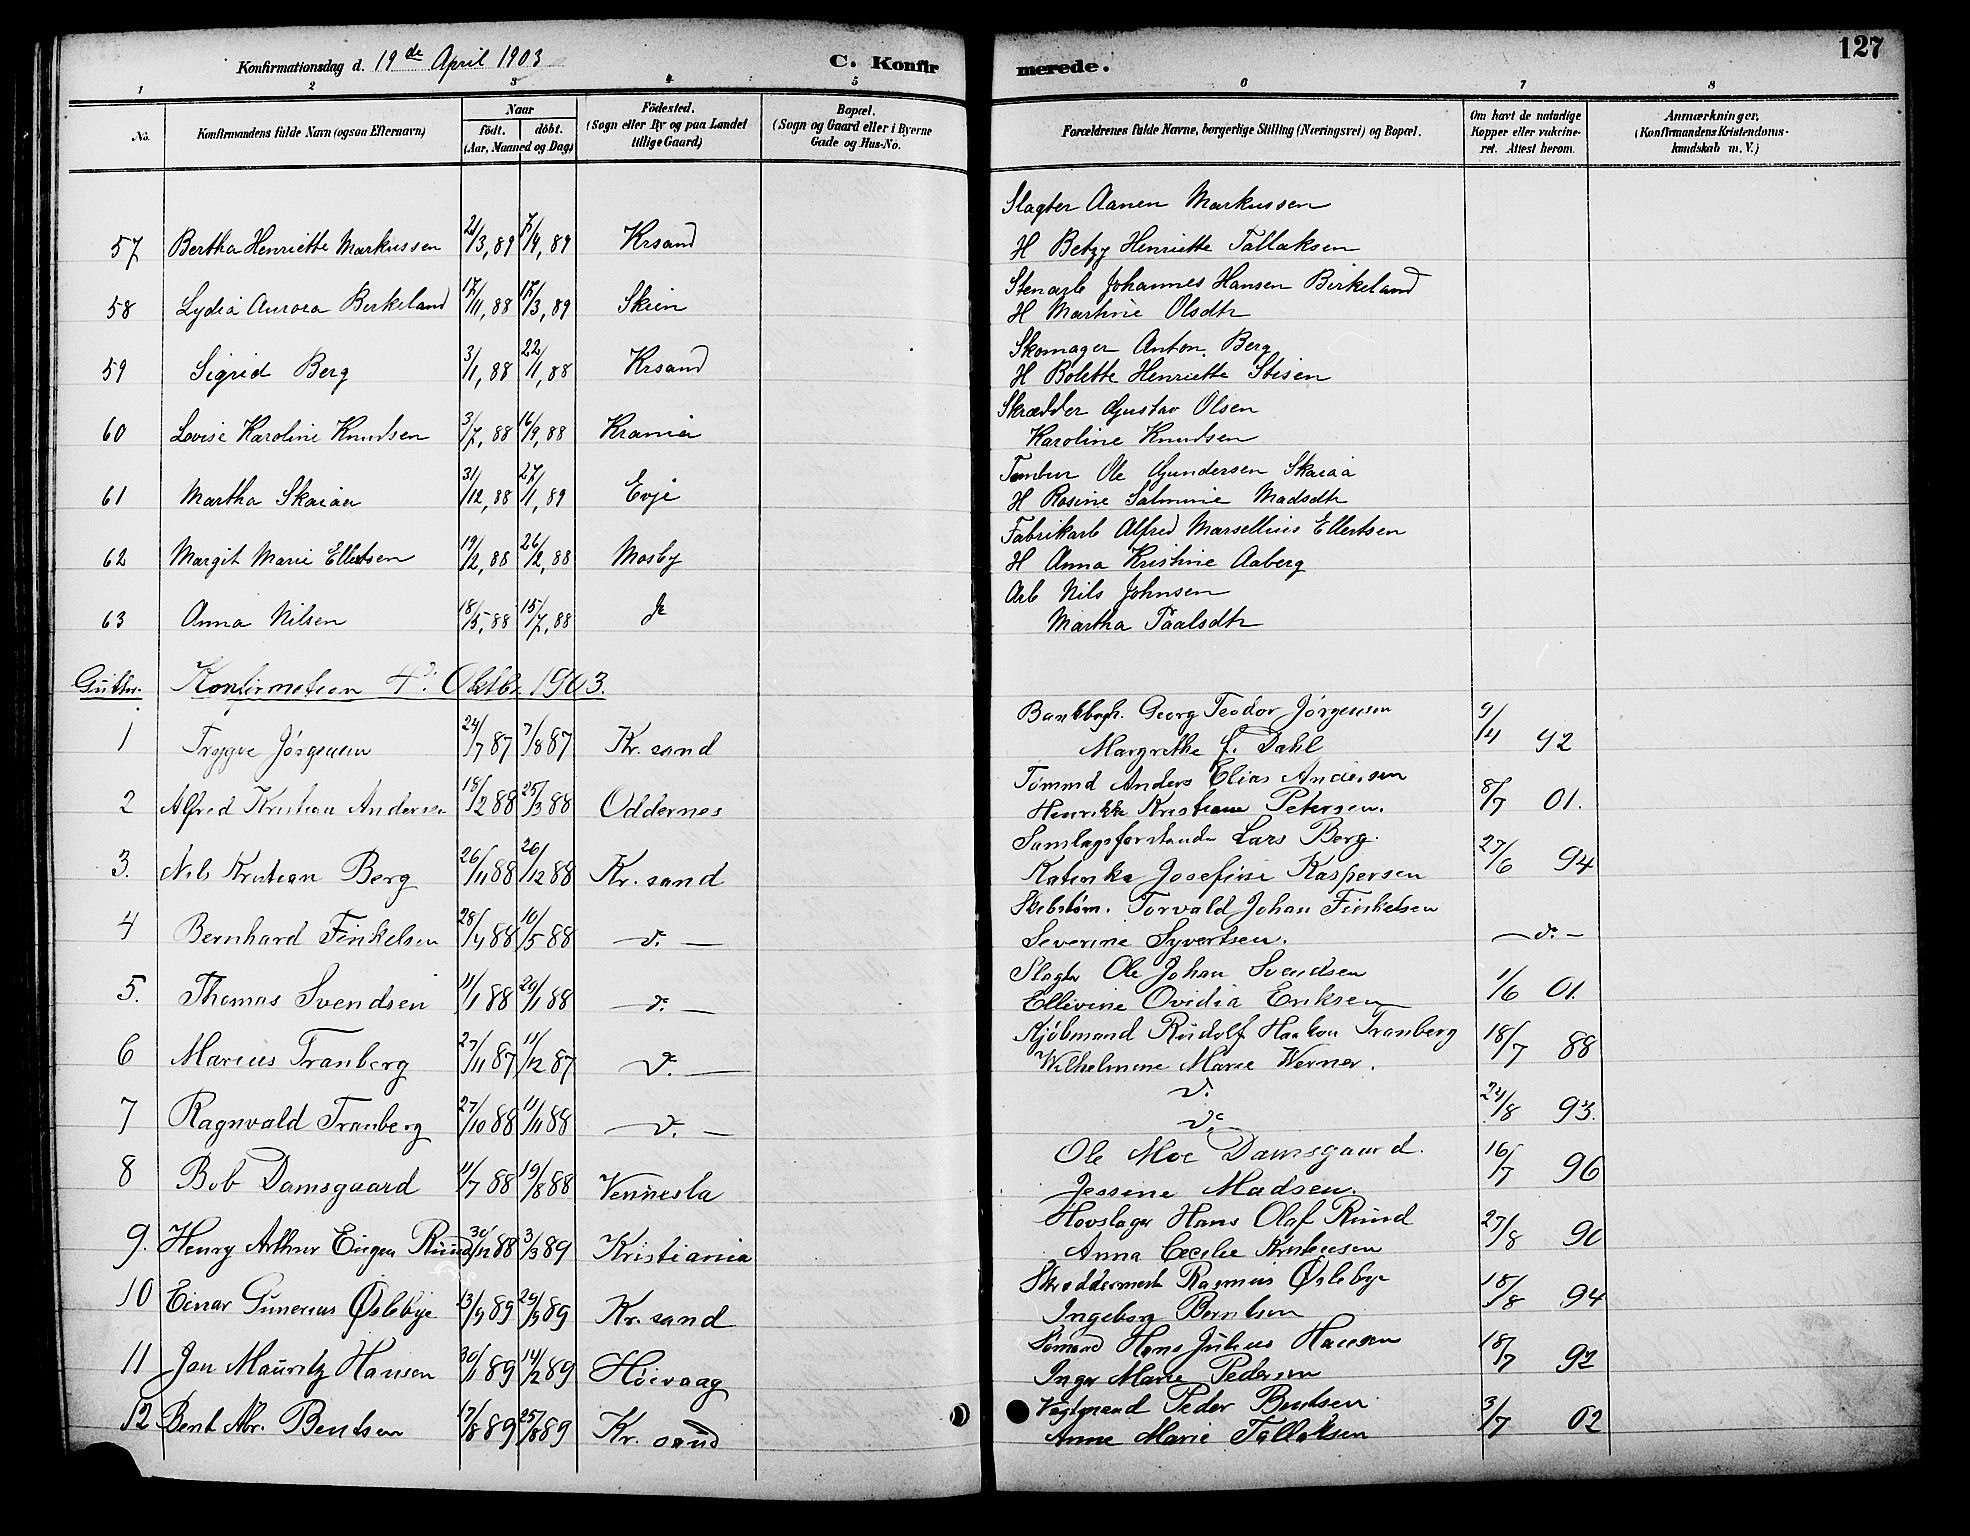 127
Konfirmationsdag d. 19de April 1903
C. Konfirmerede.
1 2 3 4 5 6 7 8
No.
Konfirmandens fulde Navn (ogsaa Efternavn)
Naar født. døbt. (Aar, Maaned og Dag)
Fødested. (Sogn eller By og paa Landet tillige Gaard)
Bopæl. (Sogn og Gaard eller i Byerne Gade og Hus-No.
Forældrenes fulde Navne, borgerlige Stilling (Næringsvei) og Bopæl.
Om havt de naturlige Kopper eller vakcineret. Attest herom.
Anmærkninger. (Konfirmandens Kristendomskundskab m. V.)
Slagter Aanen Markussen
57 Bertha Henriette Markussen 21/3, 89 7/4, 89 Krsand H Betzy Henriette Tallaksen
Stenarb Johannes Hansen Birkeland
58 Lydia Aurora Birkeland 17/11, 88 17/3, 89 Skien H Martine Olsdtr
Skomager Anton Berg
59 Sigrid Berg 3/1, 88 22/1, 88 Krsand H Bolette Henriette Stisen
Skrædder Gustav Olsen
60 Lovise Karoline Knudsen 3/7, 88 16/9, 88 Krania Karoline Knudsen
Ole Gundersen Skaiaa
61 Martha Skaiaa 31/12, 88 27/1, 89 Evje H Rosine Salmine Madsdtr
Fabrikarb Alfred Marsellius Ellertsen
62 Margit Marie Ellertsen 19/2, 88 26/2, 88 Mosby H Anna Kristine Aaberg
Arb Nils Johnsen
63 Anna Nilsen 18/5, 88 15/7, 88 Martha Paalsdtr
Gutter. Konfirmation 4d. Oktbr. 1903.
Georg Teodor Jörgensen
1 Trygve Jörgensen 24/7 87 7/8 87 Kr.sand Margrethe f. Dahl 9/4 92
Tömmd Anders Elias Andersen
2 Alfred Kristian Andersen 19/2 88 25/3 88 Oddernes Henrikke Kristiane Petersen. 8/7 01.
Samlagsforstander Lars Berg.
3. Nils Kristian Berg 26/11 88 26/12 88 Kr.sand Katinka Josefine Kaspersen 27/6 94
Skibstöm. Torvald Johan Finkelsen
4 Bernhard Finkelsen 28/4 88 10/5 88 – d. – Severine Syvertsen. – d. –
Slagter Ole Johan Svendsen
5. Thomas Svendsen 11/1 88 29/1 88 – d. – Ellivine Ovidia Eriksen 1/6 01.
Kjöbmand Rudolf Haakon Tranberg
6 Marius Tranberg 27/11 87 11/12 87 – d. – Wilhelmine Marie Werner. 18/7 88
d.
7 Ragnvald Tranberg 27/10 88 11/11 88 – d. – d. 24/8 93.
Ole Moe Damsgaard.
8 Bob Damsgaard 11/7 88 19/8 88 Vennesla Jessine Madsen. 16/7 96
Hovslager Hans Olaf Ruud
9. Henry Arthur Eugen Ruud 30/12 88 3/3 89 Kristiania Anna Cecilie Kristensen 27/8 90
Skreddermest Rasmus Öslebye
10 Einar Gunerius Öslebye 13/9 89 29/9 89 Kr.sand Ingeborg Berntsen 18/8 94
Sömand Hans Julius Hansen
11 Jan Mauritz Hansen 30/1 89 14/2 89 Höivaag Inger Marie Pedersen 18/7 92
Vegtmand Peder Bentsen
12 Bent Abr. Bentsen 17/8 89 25/8 89 Kr.sand Anne Marie Tallaksen 3/7 02